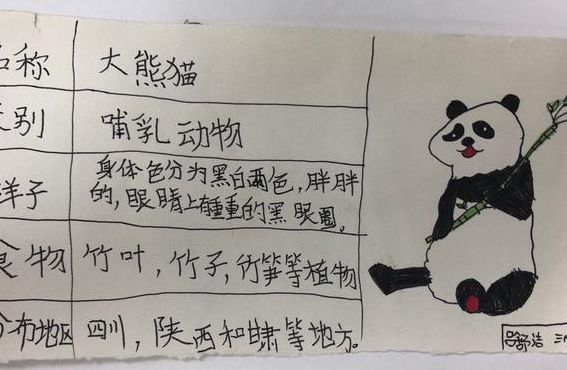 名称 大熊猫
类别 哺乳动物
样子 身体色分为黑白两色,胖胖
的,眼睛上有重重的黑眼圈。
食物 竹叶,竹子,竹笋等植物
分布地区 四川,陕西和甘肃等地方。
舒洁